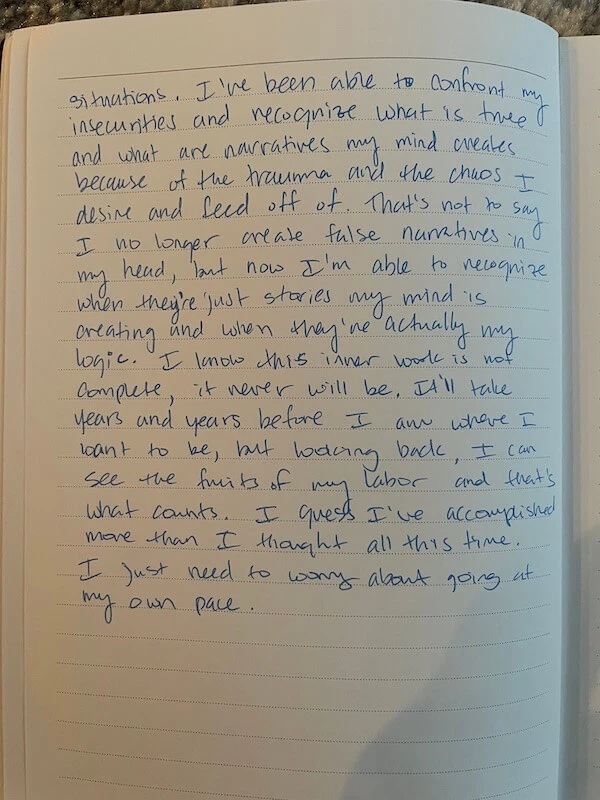 situations. I've been able to confront my
insecurities and recognize what is true
and what are narratives my mind creates
because of the trauma and the chaos I
desire and feed off of. That's not to say
I no longer create false narratives in
my head, but now I'm able to recognize
when they're just stories my mind is
creating and when they're actually my
logic. I know this inner work is not
complete, it never will be. It'll take
years and years before I am where I
want to be, but looking back, I can
see the fruits of my labor and that's
what counts. I guess I've accomplished
more than I thought all this time.
I just need to worry about going at
my own pace.